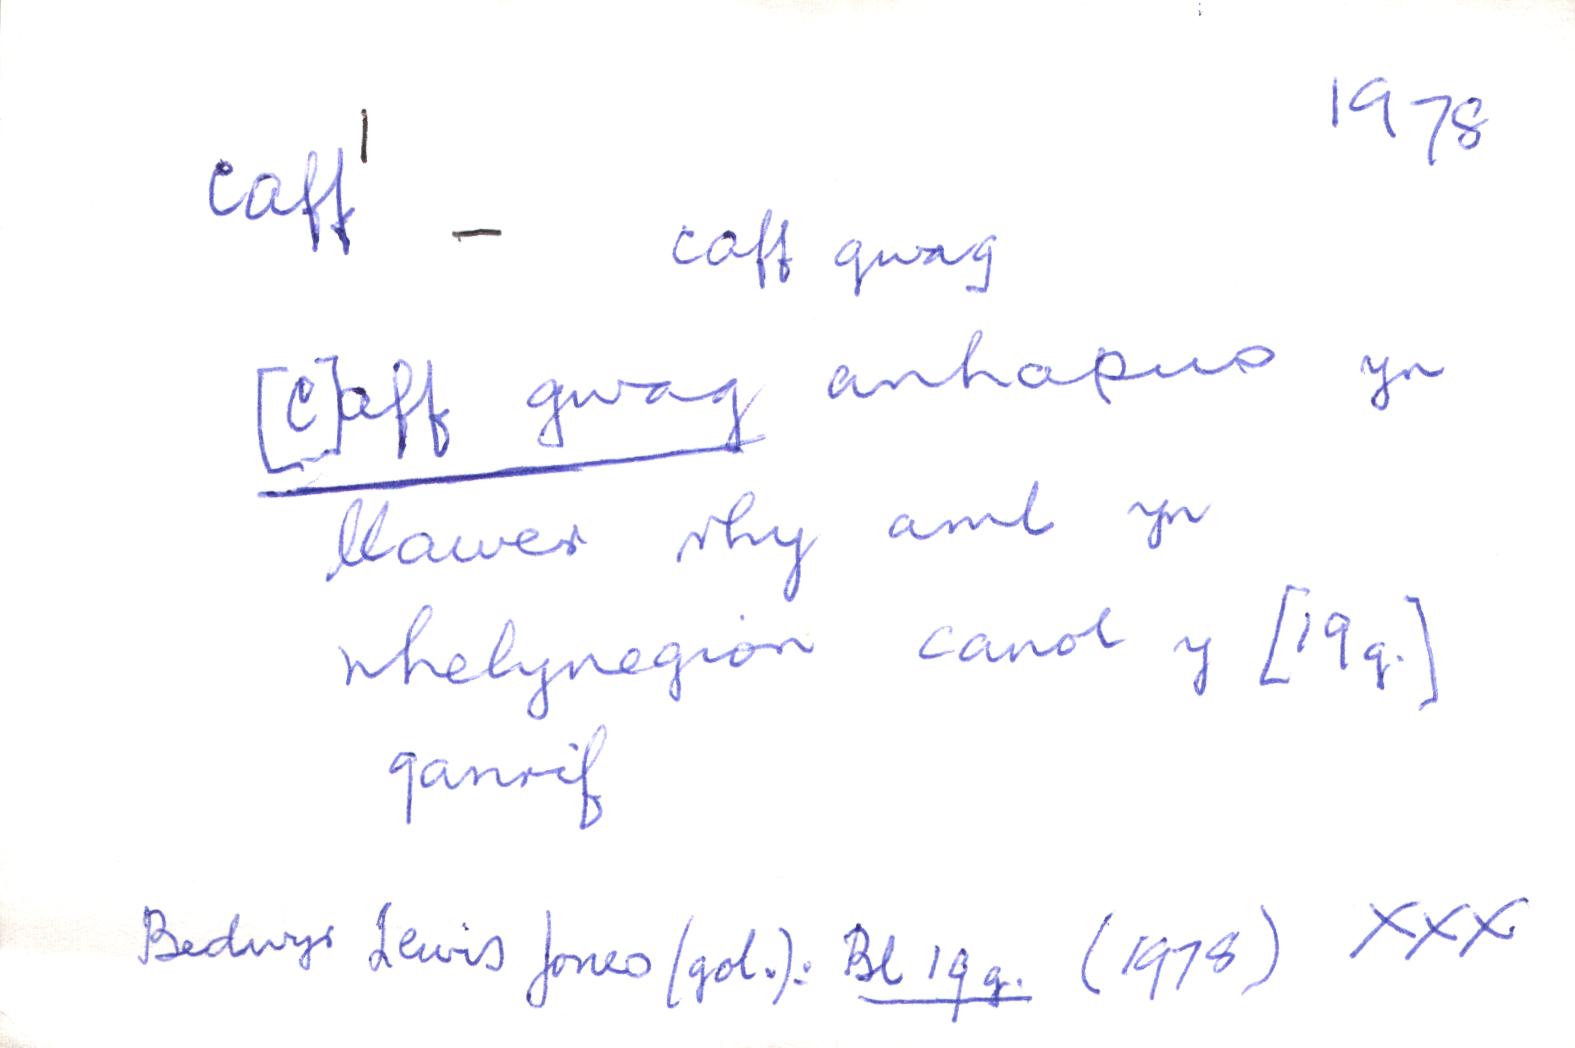 1978
caff¹ – caff gwag
[C]aff gwag anhapus yn
llawer rhy aml yn
rhelynegion canol y [19g.]
ganrif
Bedwyr Lewis Jones (gol.): Bl 19g. (1978) XXX